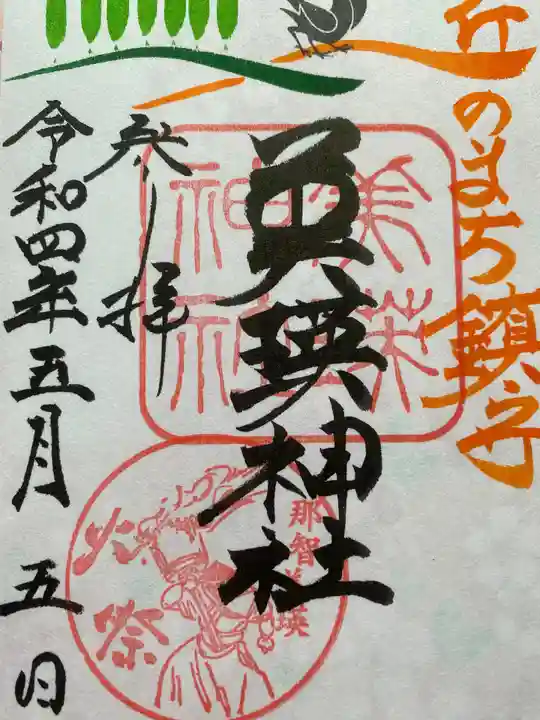 丘のまち鎮守
美瑛神社
奉拝
令和四年五月五日
美瑛
神社
那智美瑛
火祭